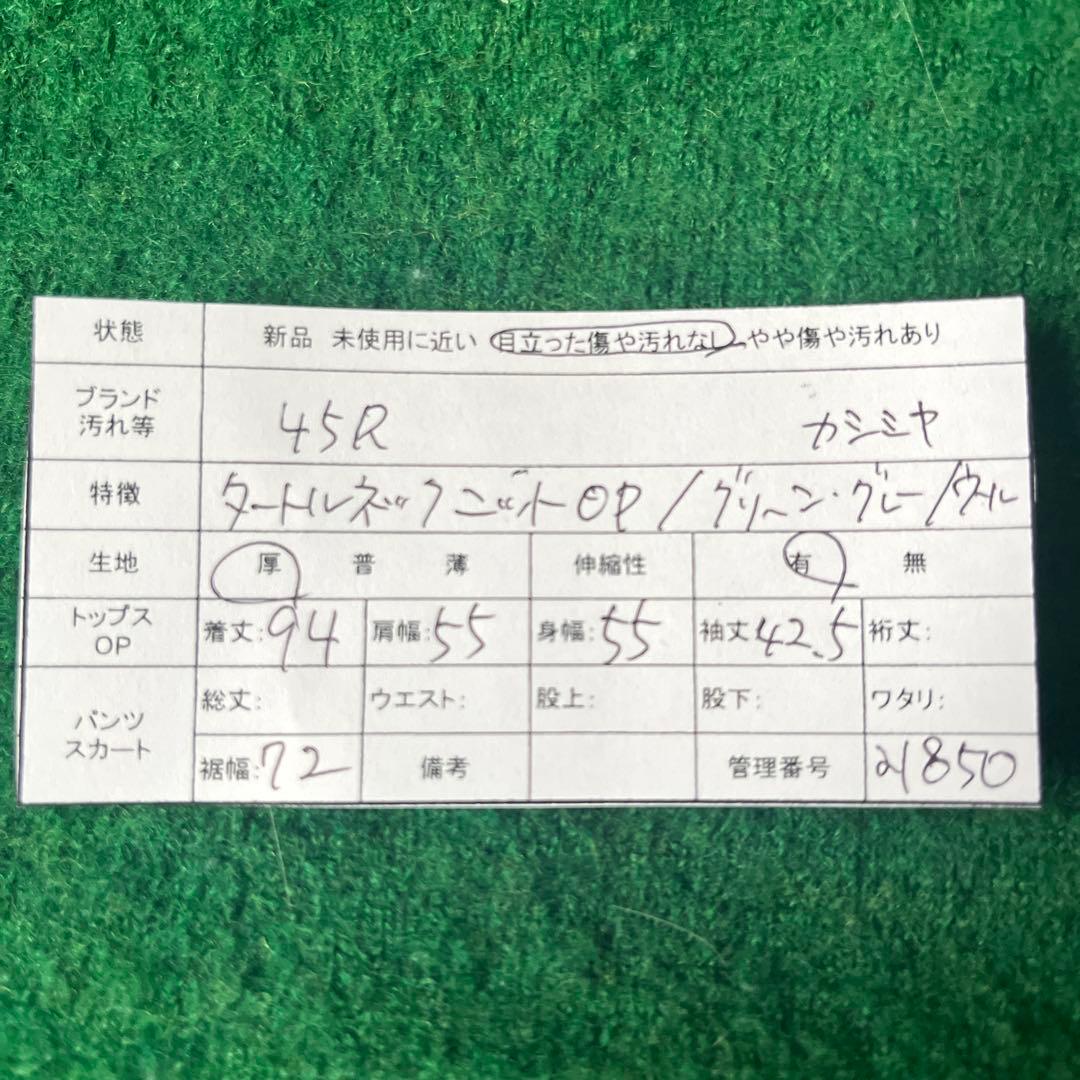 状態 新品 未使用に近い 目立った傷や汚れなし やや傷や汚れあり
ブランド
汚れ等 45R カシミヤ
特徴 タートルネックニットOP/グリーン・グレー/ウール
生地 厚 普 薄 伸縮性 有 無
トップス
OP 着丈:94 肩幅:55 身幅:55 袖丈42.5 裄丈:
パンツ
スカート 総丈: ウエスト: 股上: 股下: ワタリ:
裾幅:72 備考 管理番号 21850